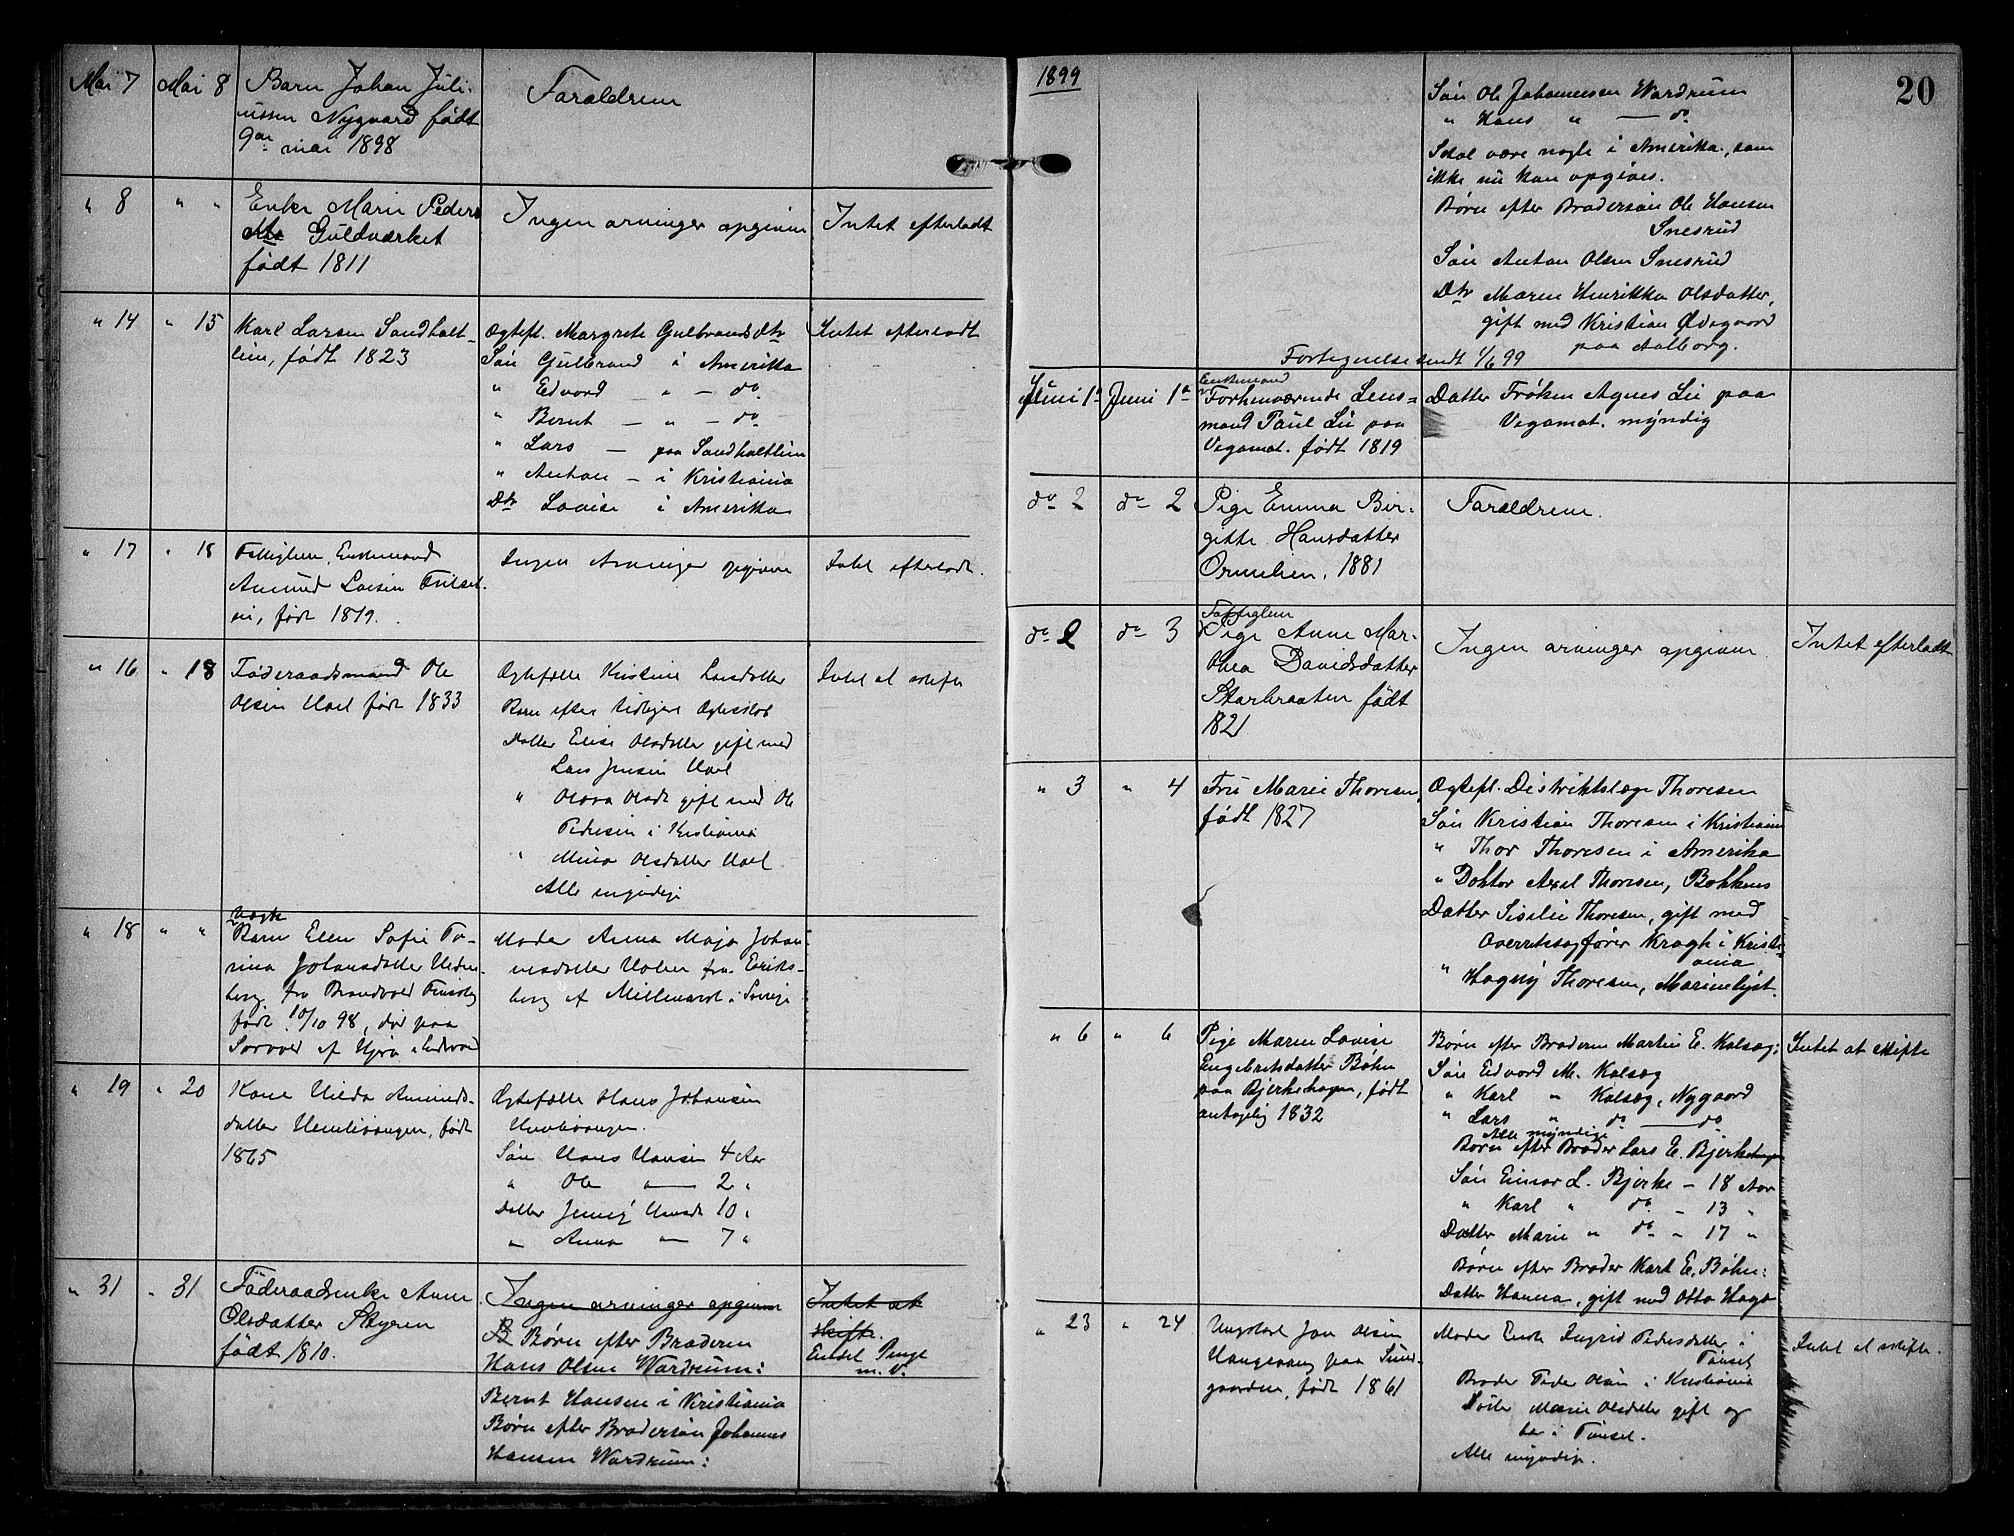 Mai 7 Mai 8 Barn Johan Juli-
ussen Nygaard født
9de mai 1898
Forældrene
" 8 " " Enke Marie Peders
Guldværket
født 1811
Ingen arvinger opgiven
Intet efterladt
" 14 " 15 Karl Larsen Sandholt-
lien, født 1823
Ægtefl. Margrete Gulbrandsdtr
Søn Gulbrand i Amerika
" Edvard " - do.
" Bernt - " - do.
" Lars - paa Sandholtlien
" Anton - i Kristiania
Dtr Lovise i Amerika
Intet efterladt
" 17 " 18 Fattiglem, Enkemand
Amund Larsen
født 1819.
Ingen Arvinger opgivne
Intet efterladt.
" 16 " 18 Føderaadsmand Ole
Olsen Hoel født 1833
Ægtefælle Kristine Larsdatter
Børn efter tidligere Ægteskab
Datter Elise Olsdatter gift med
Lars Jensen Hoel
" Olava Olsdt gift med Ole
Pedersen i Kristiania
" Mina Olsdatter Hoel
Alle myndige
Intet at skifte
" 18 " " Uægte
Barn Ellen Sofie To-
rina Johansdatter
fra Brandvold Finskog
født 10/10 98, død paa
Sorvoel af
Moder Anna Maja Johan-
nesdatter Holen fra Eriks-
berg af i Sverige
" 19 " 20 Kone Hilda Amunds-
datter Hemlivangen, født
1865
Ægtefælle Hans Johansen
Hemlivangen.
Søn Hans Hansen 4 Aar
" Ole " 2 "
Datter Jenny Hansdt 10 "
" Anna " 7 "
" 31 " 31 Føderaadsenke Anne
Olsdatter Styren
født 1810.
Ingen arvinger opgivne
Børn efter Broderen
Hans Olsen Wardrum:
Bernt Hansen i Kristiania
Børn efter Brodersøn Johannes
Hansen Wardrum:
Intet at
skifte.
Endel Penge
m. v.
1899
20
Søn Ole Johannessen Wardrum
" Hans " — do.
Skal være nogle i Amerika, som
ikke nu kan opgives.
Børn efter Brodersøn Ole Hansen
Snesrud
Søn Anton Olsen Snesrud
Dtr Maren Henrikka Olsdatter,
gift med Kristian Ødegaard
paa Aalborg.
Fortegnelse sendt 1/6 99
Juni 1ste Juni 1ste Enkemand
Forhenværende Lens=
mand Paul Lie paa
Vegamot. født 1819
Datter Frøken Agnes Lie paa
Vegamot. myndig
do 2 do 2 Pige Emma Bir-
gitte Hansdatter
Ormelien, 1881
Forældrene.
do 2 do 3 Fattiglem
Pige Anne Mar-
thea Davidsdatter
Storbraaten født
1821
Ingen arvinger opgivne
Intet efterladt
" 3 " 4 Fru Marie Thoresen,
født 1827
Ægtefl. Distriktslæge Thoresen
Søn Kristian Thoresen i Kristiania
" Thor Thoresen i Amerika
" Doktor Axel Thoresen, Bøkkens
Datter Sisilie Thoresen, gift med
Overretssagfører Kragh i Kristi-
ania
" Hagny Thoresen, Marinelyst.
" 6 " 6 Pige Maren Lovise
Engebretsdatter Bøhn
paa Bjerkehagen, født
antagelig 1832
Børn efter Broderen Martin E. Kalsæg:
Søn Edvard M. Kalsæg
" Karl " Kalsæg, Nygaard
" Lars " do — do
Alle myndige
Børn efter Broder Lars E. Bjerkehagen
Søn Einar L. Bjerke - 18 Aar
" Karl " do. - 13 "
Datter Marie " do - 17 "
Børn efter Broder Karl E. Bøhn:
Datter Hanna, gift med Otto Haga
Intet at skifte
" 23 " 24 Ungkarl Jon Olsen
Haugsvang paa Sund-
gaarden, født 1861
Moder Enke Ingrid Pedersdatter i
Tønset
Broder Peder Olsen i Kristiania
Søster Marie Olsdatter gift og
bor i Tønset.
Alle myndige.
Intet at skifte.